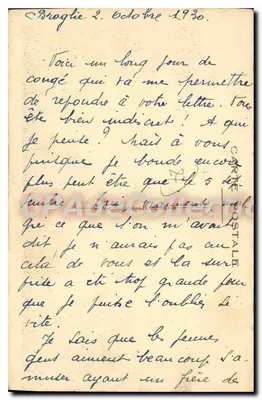 Broglie 2. Octobre 1930.
Voici un long jour de
congé qui va me permettre
de repondre à votre lettre. Vous
ête bien indiscret! A qui
je pense? Mais à vous
puisque je boude encore
plus peut être que le 5
malgre ce que l'on m'avait
dit je n'aurais pas cru
celà de vous et la sur
prise a été trop grande pour
que je puisse l'oublier si
vite.
Je sais que les jeunes
gens aiment beaucoup s'a
muser ayant un frère de
CARTE POSTALE